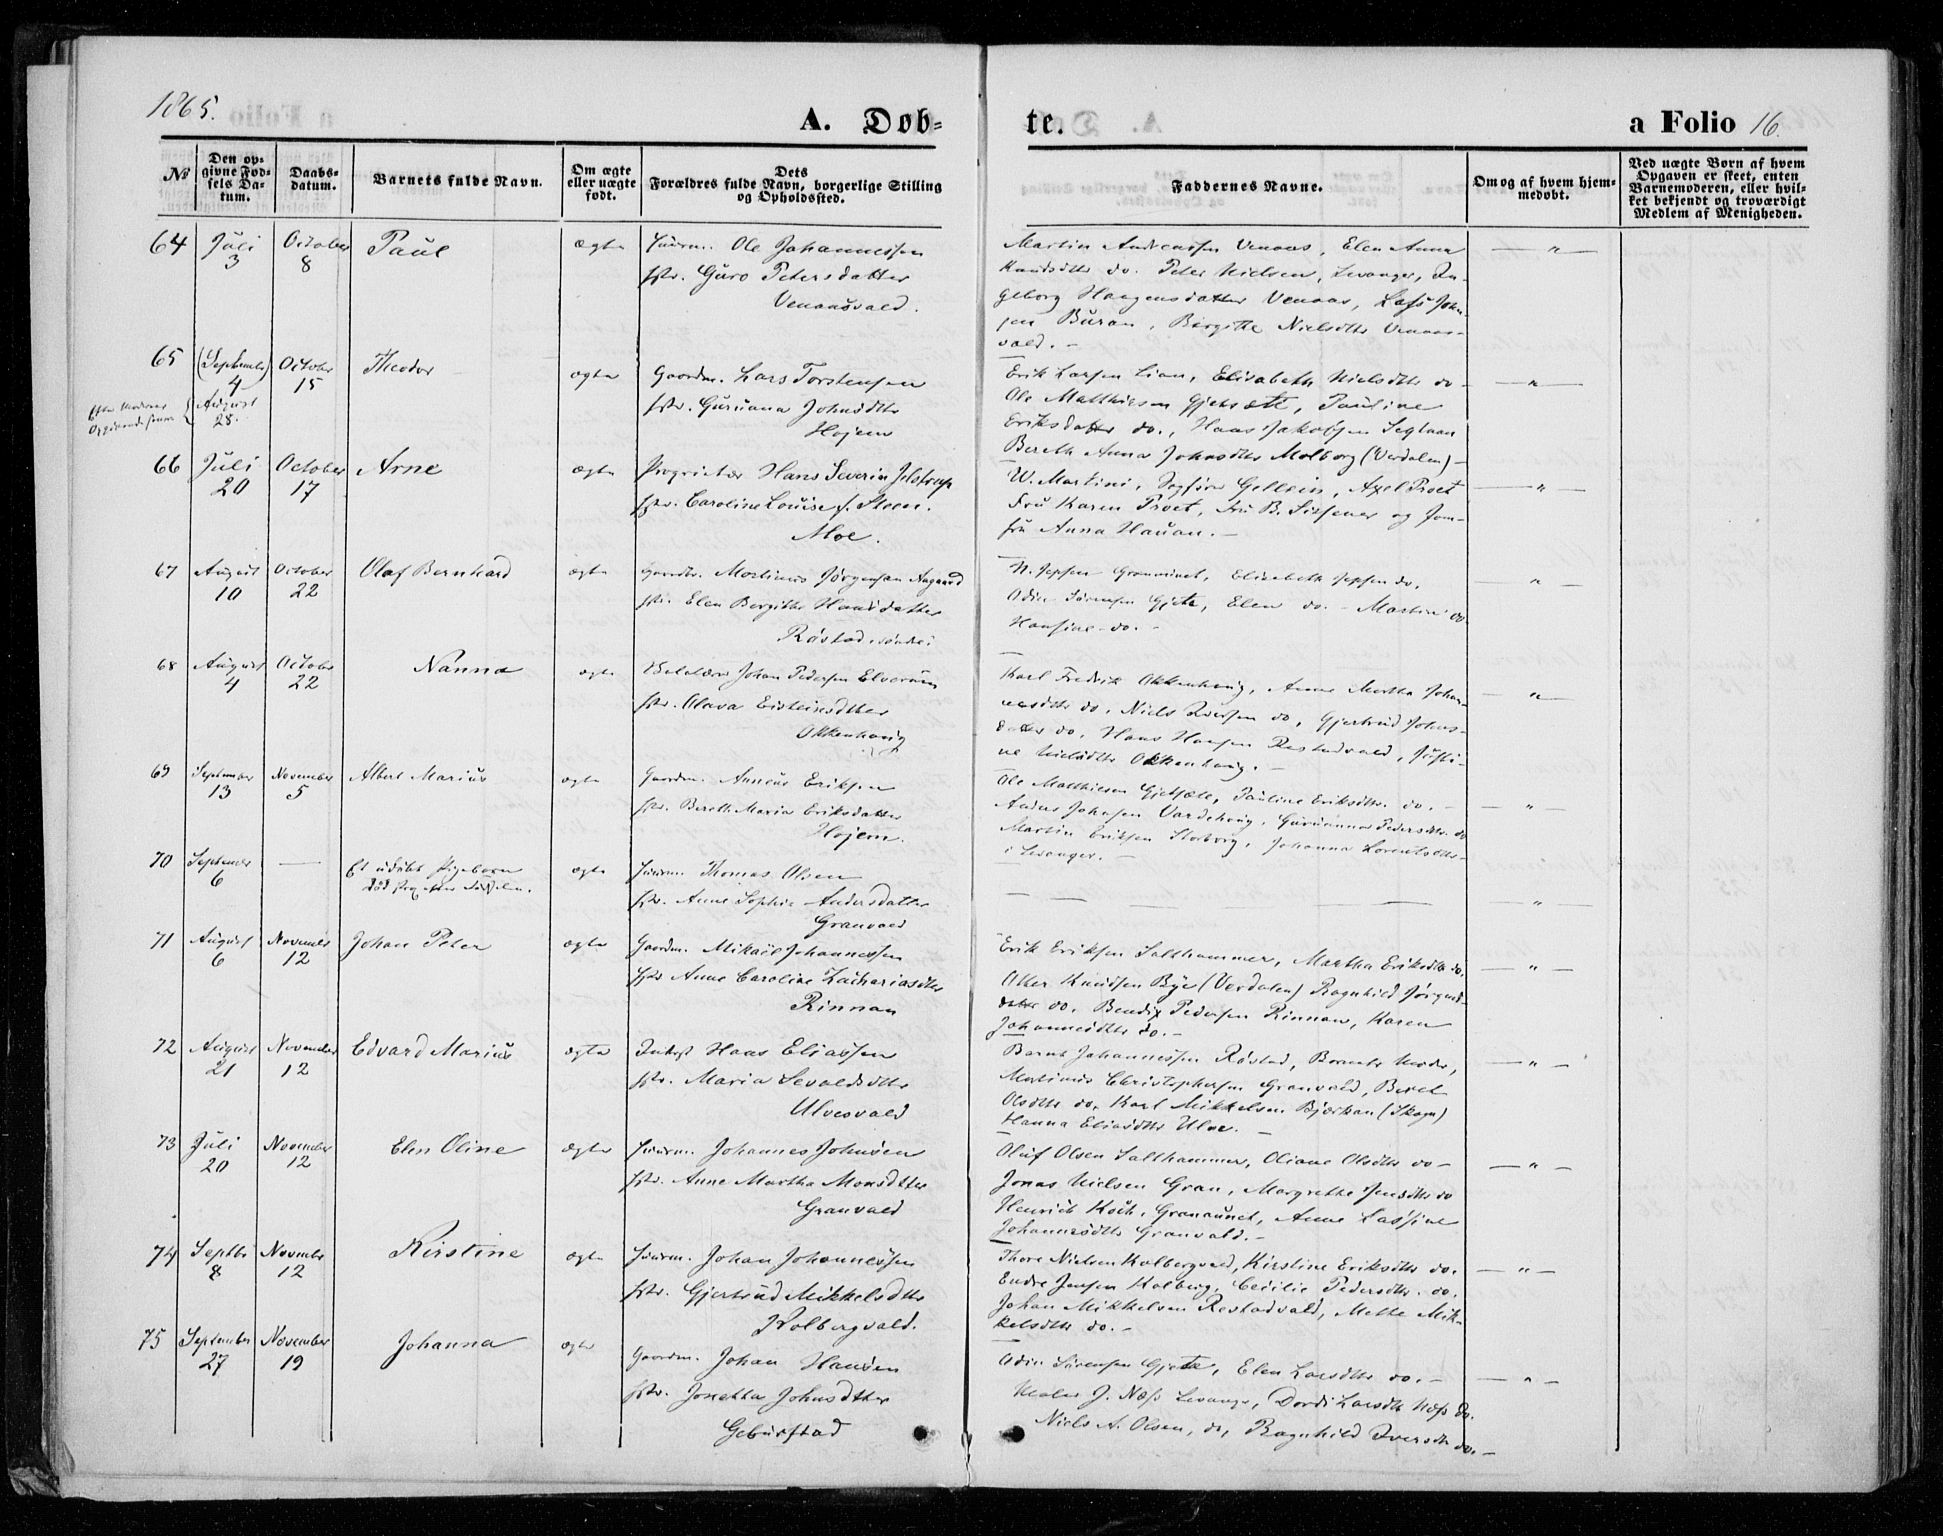 1865.
A. Døb-
te.
a Folio 16.
№
Den op-
givne Fød-
sels Da-
tum.
Daabs-
datum.
Barnets fulde Navn.
Om ægte
eller uægte
født.
Dets
Forældres fulde Navn, borgerlige Stilling
og Opholdssted.
Faddernes Navne.
Om og af hvem hjem-
medøbt.
Ved uægte Børn af hvem
Opgaven er skeet, enten
Barnemoderen, eller hvil-
ket bekjendt og troværdigt
Medlem af Menigheden.
64 Juli 3 October 8 Paul ægte
Huusm. Ole Johannessen
Guro Petersdatter
Venaasvald.
Martin Andreassen Venaas, Elen Anna
Knudsdtr do. Peter Nielsen, Levanger, In-
geborg Haagensdatter Venaas, Lars John-
sen Buran, Birgitte Nielsdtr Venaas-
vald. -
65 (September) 4 August 28. October 15 Theodor ægte
Efter Moderens
Opgivende
Gaardm. Lars Torstensen
Guruana Johnsdtr
Hojem
Erik Larsen Lian, Elisabeth Nielsdtr do -
Ole Matthiesen Gjetsæte, Pauline
Eriksdatter do., Haas Jakobsen Seglaan
Bereth Anna Johnsdtr Molborg (Verdalen) -
66 Juli 20 October 17 Arne ægte
Proprietær Hans Severin Jelstrup
Caroline Louise f. Steen.
Moe.
W. Martini, Axel Proet
Fru Karen Proet, Fru B. Sissener og Jom-
fru Anna Hauan. -
67 August 10 October 22 Olaf Bernhard ægte
Gaardbr. Martinus Jørgensen Aagaard
Elen Bergitte Hansdatter
Røstad søndre
N. Jepsen Granaunet, Elisabeth Jepsen do.
Odin Sørensen Gjete, Elen do. - Martin do
Hansine do. -
68 August 4 October 22 Nanna ægte
Johan Pedersen Elverum
Olava Eisteinsdtter
Okkenhaug
Karl Fredrik Okkenhaug, Anne Martha Johan-
nesdtr do, Niels Iversen do, Gjertrud Johns-
datter do, Hans Hansen Restadvald, Justi-
ne Nielsdtr Okkenhaug. -
69 September 13 November 5 Albert Marius ægte
Gaardm. Anneus Eriksen
Bereth Maria Eriksdatter
Hojem.
Ole Matthiesen Gjetsæte, Pauline Eriksdtr. do. -
Anders Johnsen Vardehaug, Guruanna Pedersdtr. do
Martin Eriksen Storborg, Johanna Lorentsdtr-
i Levanger. -
70 September 6 Et udøbt Pigebarn
død strax efter Fødselen. ægte
Huusm. Thomas Olsen
Anne Sophie Andersdatter
Granvald
71 August 6 November 12 Johan Peter ægte
Gaardm. Mikael Johannessen
Anne Caroline Zachariasdtr
Rinnan
Erik Eriksen Salthammer, Martha Eriksdtr do.
Oker Knudsen Bye (Verdalen) Ragnhild Jørgens-
datter do, Bendix Pedersen Rinnan, Karen
Johannesdtr do. -
72 August 21 November 12 Edvard Marius ægte
Inderst Haas Eliassen
Maria Sevaldsdtr
Ulvesvald
Bernt Johannessen Røstad, Barnets Moder,
Martinus Christophersen Granvald, Beret
Olsdtr do, Karl Mikkelsen Bjærkan (Skogn)
Hanna Eliasdtr Ulve. -
73 Juli 20 November 12 Elen Oline ægte
Huusm. Johannes Johnsen
Anne Martha Monsdtter
Granvald
Oluf Olsen Salthammer, Oliane Olsdtr do -
Jonas Nielsen Gran, Margrethe Jensdtr do
Henrich Koch, Granaunet, Anne Lassine
Johannesdtr Granvald. -
74 Septbr 8 November 12 Kirstine ægte
Huusm. Johan Johannessen
Gjertrud Mikkelsdtr
Holbergvald.
Thore Nielsen Holbergvald, Kirstine Eriksdtr do.
Endre Jensen Holberg, Cecilie Pedersdtr. do.
Johan Mikkelsen Restadvald, Mette Mik-
kelsdtr do. -
75 September 27 November 19 Johanna ægte
Gaardm. Johan Hansen
Jonetta Johnsdtter
Geburstad
Odin Sørensen Gjete, Elen Larsdtr do. -
Maler J. Næss Levanger, Dordi Larsdtr Næss do.
Niels A. Olsen, do, Ragnhild Iversdtr do. -